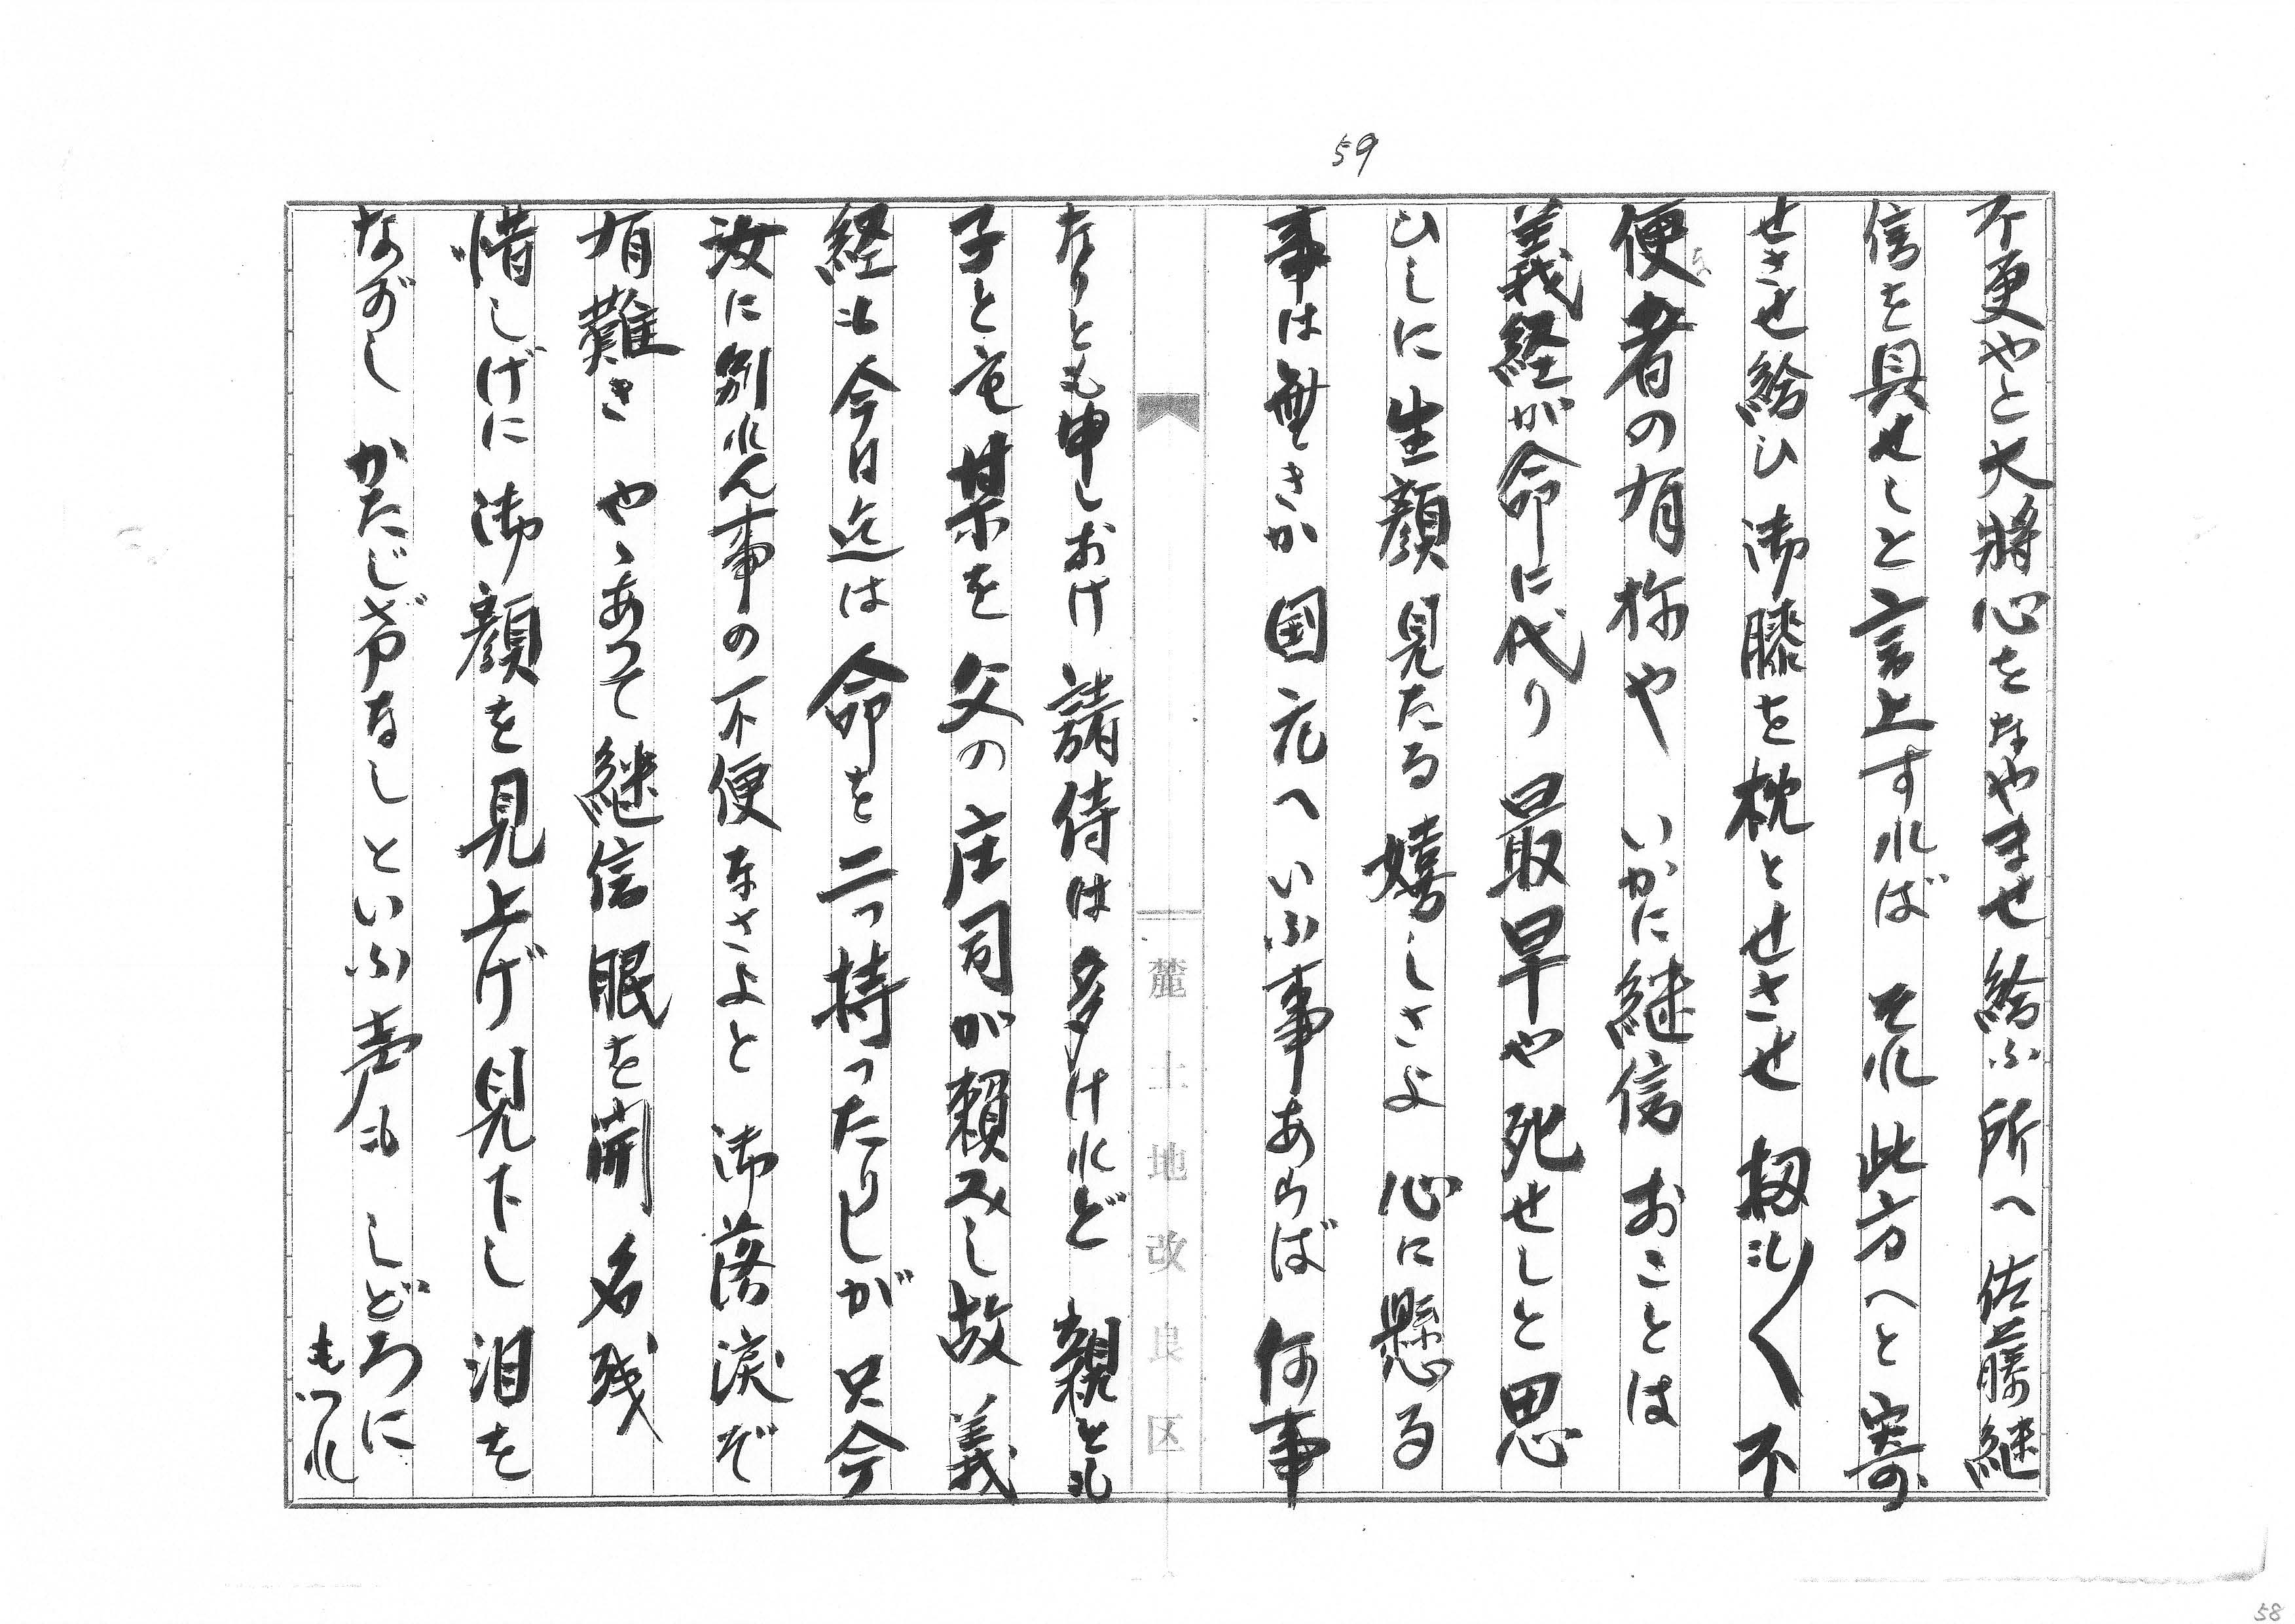 59
不更やと大将心をなやませ給ふ所へ 佐藤継
信を具せしと言上すれば それ此方へと寄
せさせ給ひ 御膝を枕とせさせ 扨も〱 不
便者の有称や いかに継信 おことは
義経が命に代り 最早や死せしと思
ひしに 生顔見たる 嬉しさよ 心に懸る
事は無きか 国元へ いふ事あらば 何事
なりとも申しおけ 諸侍は多けれど 親とも
子とも某を 父の庄司が頼みし故 義
経も今日迄は 命を二つ持つたりしが 只今
汝に別れん事の不便なさよと 御落涙ぞ
有難き やゝあつて 継信 眼を開 名残
惜しげに 御顔を見上げ見下し 泪を
ながし かたじけなしといふ声も しどろに
もつれ
麓土地改良区
58